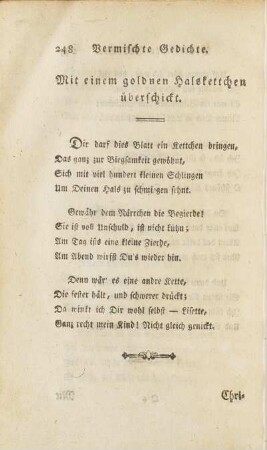 248 Vermischte Gedichte.
Mit einem goldnen Halskettchen
überschickt.
Dir darf dies Blatt ein Kettchen bringen,
Das ganz zur Biegsamkeit gewöhnt,
Sich mit viel hundert kleinen Schlingen
Um Deinen Hals zu schmiegen sehnt.
Gewähr dem Närrchen die Begierde!
Sie ist voll Unschuld, ist nicht kühn;
Am Tag ists eine kleine Zierde,
Am Abend wirfst Du's wieder hin.
Denn wär' es eine andre Kette,
Die fester hält, und schwerer drückt;
Da winkt' ich Dir wohl selbst — Lisette,
Ganz recht mein Kind! Nicht gleich genickt.
Chri-